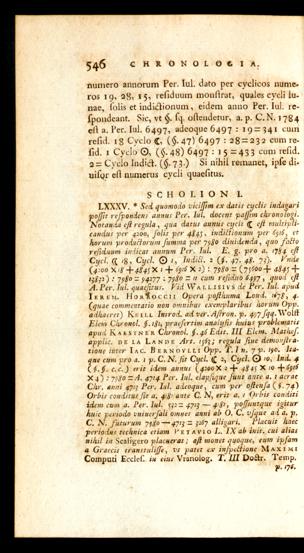 546 CHRONOLOGIA.
numero annorum Per. Iul. dato per cyclicos nume-
ros 19, 28, 15, residuum monstrat, quales cycli lu-
nae, solis et indictionum, eidem anno Per. Iul. re-
spondeant. Sic, vt §. sq. ostendetur, a. p. C. N. 1784
est a. Per. Iul. 6497, adeoque 6497 : 19 = 341 cum
resid. 18 Cyclo ☾, (§. 47) 6497 : 28 = 232 cum re-
sid. 1 Cyclo ☉, (§. 48) 6497 : 15 = 433 cum resid.
2 = Cyclo Indict. (§. 73.) Si nihil remanet, ipse di-
uisor est numerus cycli quaesitus.
SCHOLION I.
LXXXV. * Sed quomodo vicissim ex datis cyclis indagari
possit respondens annus Per. Iul. docent passim chronologi.
Notanda est regula, qua datus annus cycli ☾ est multipli-
candus per 4200, solis per 4845, indictionum per 6916, et
horum productorum summa per 7980 diuidenda, quo facto
residuum indicat annum Per. Iul. E. g. pro a. 1784 est
Cycl. ☾ 18, Cycl. ☉ 1, Indict. 2 (§. 47. 48. 73). Vnde
(4200 × 18 + 4845 × 1 + 6916 × 2) : 7980 = (75600 + 4845 +
13832) : 7980 = 94277 : 7980 = 11 cum residuo 6497, quod est
A. Per. Iul. quaesitus. Vid WALLISIVS de Per. Iul. apud
IEREM. HORROCCII Opera posthuma Lond. 1678, 4.
(quae commentatio non omnibus exemplaribus horum Opp.
adhaeret) KEILL Introd. ad ver. Astron. p. 497 sq. Wolf
Elem Chronol. §. 181, praesertim analysin huius problematis
apud KARSTNER Chronol. §. 46 Edit. III Elem. Mathes.
applic. DE LA LANDE Art. 1563; regula sine demonstra-
tione inter IAC. BERNOVLLI Opp. T. I n. 75. 190. Ita-
que cum pro a. 1 p. C. N. sit Cycl. ☾ 2, Cycl. ☉ 10, Ind. 4
(§. §. c. c.) erit idem annus (4200 × 2 + 4845 × 10 + 6916
× 4) : 7980 = A. 4714 Per. Iul. elapsique sunt ante a. 1 aerae
Chr. anni 4713 Per. Iul. adeoque, cum per ostensa (§. 74)
Orbis conditus sit a.
idem cum a. Per. Iul.
huic periodo vniuersali omnes anni ab O. C. vsque ad a. p.
C. N. futurum 7980 — 4713 = 3267 alligari. Placuit haec
periodus technica etiam PETAVIO L. IX ab init. cui alias
nihil in Scaligero placuerat: ast monet quoque, eum ipsam
a Graecis transtulisse, vt patet ex inspectione MAXIMI
Computi Eccles. in eius Vranolog. T. III Doctr. Temp.
p. 176.